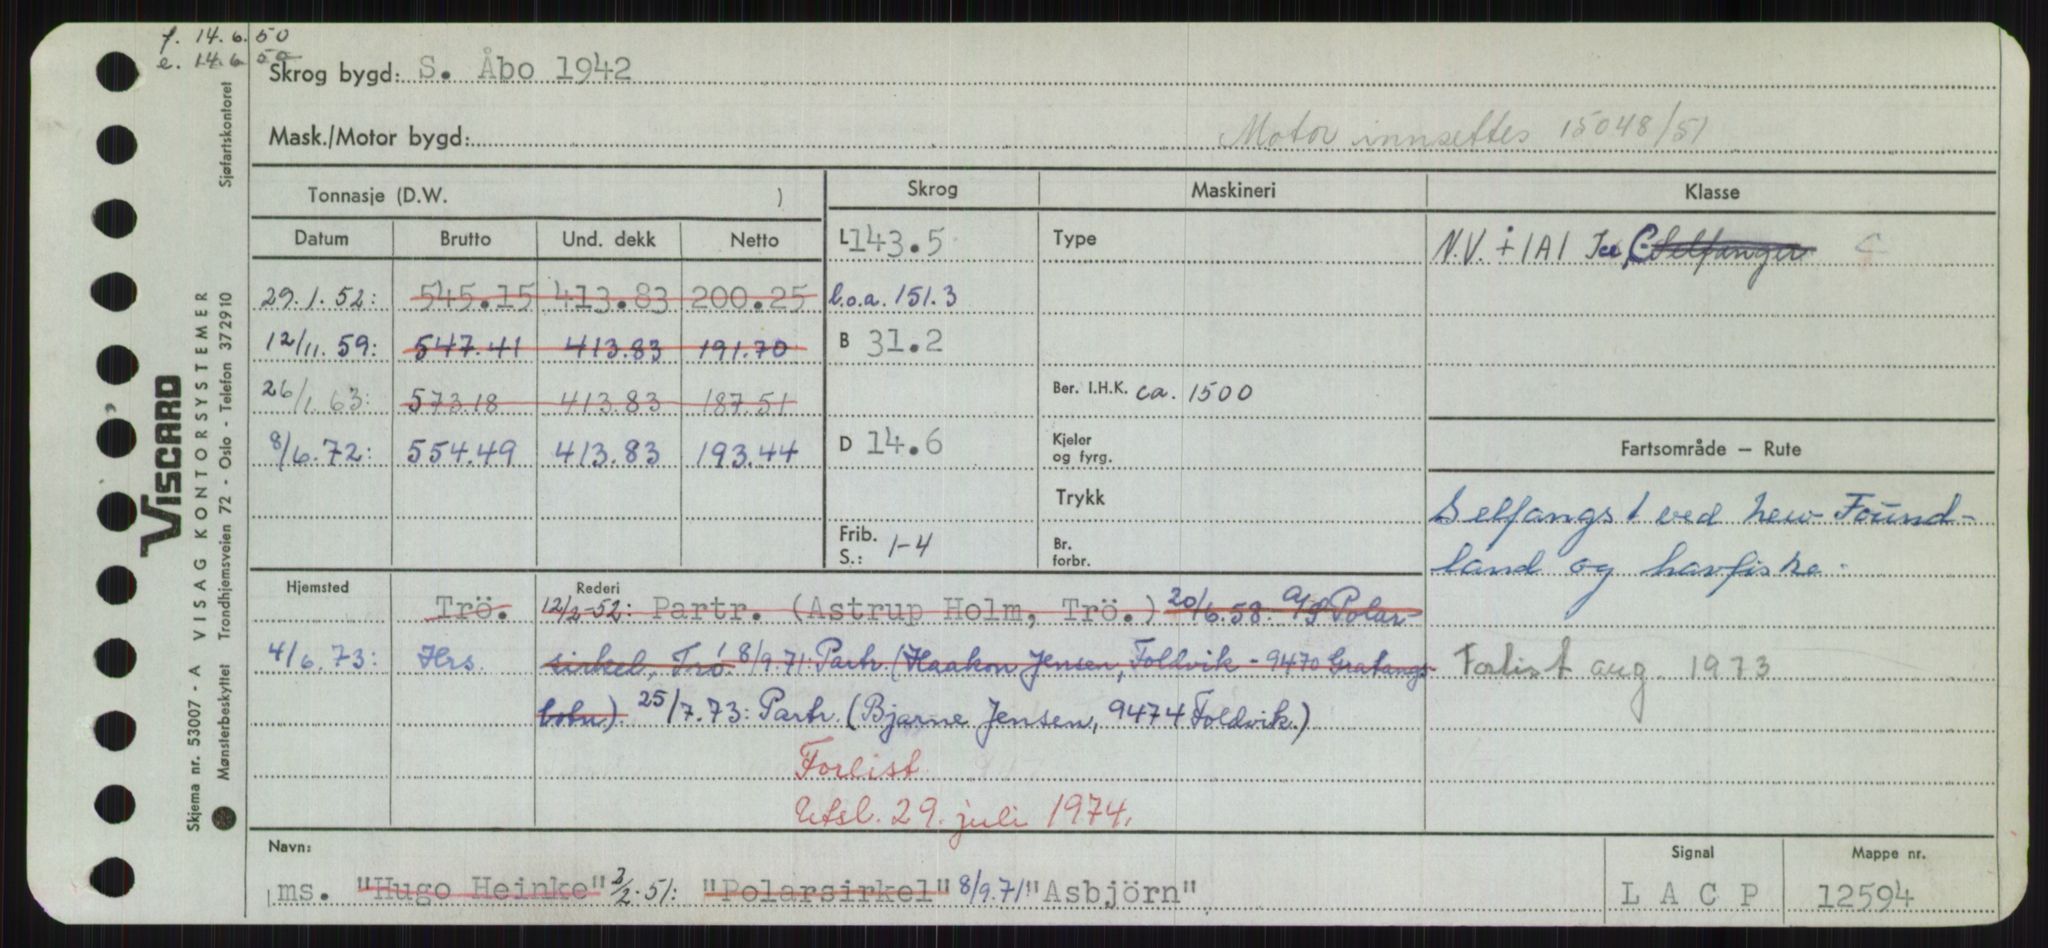 f. 14.6.50
e. 14.6.50
Skrog bygd: S. Åbo 1942
Mask./Motor bygd: Motor innsettes 15048/51
Tonnasje (D.W. ) Skrog Maskineri Klasse
Datum Brutto Und. dekk Netto L 143.5 Type N.V. + 1A1 Ice, C Selfanger
29.1.52: 545.15 413.83 200.25 l.o.a. 151.3
12/11.59: 547.41 413.83 191.70 B 31.2
26/1.63: 573.18 413.83 187.51 Ber. I.H.K. ca. 1500
8/6.72: 554.49 413.83 193.44 D 14.6 Kjeler og fyrg. Fartsområde – Rute
Trykk Selfangst ved New-Found-
Frib. S.: 1-4 Br. forbr. land og havfiske.
Hjemsted Rederi
Trö. 12/2-52: Partr. (Astrup Holm, Trö.) 20/6.58. A/S Polar-
4/6.73: Hrs. sirkel, Trö. 8/9.71: Partr. (Haakon Jensen, Foldvik - 9470 Gratangs- Forlist aug. 1973
botn). 25/7.73: Partr. (Bjarne Jensen, 9474 Foldvik.)
Forlist.
Utsl. 29. juli 1974.
Navn: Signal Mappe nr.
ms. "Hugo Heinke" 2/2.51: "Polarsirkel" 8/9.71: "Asbjörn" L A C P 12594
Sjøfartskontoret
VISCARD
Skjema nr. 53007 - A VISAG KONTORSYSTEMER
Mønsterbeskyttet Trondhjemsveien 72 - Oslo - Telefon 372910